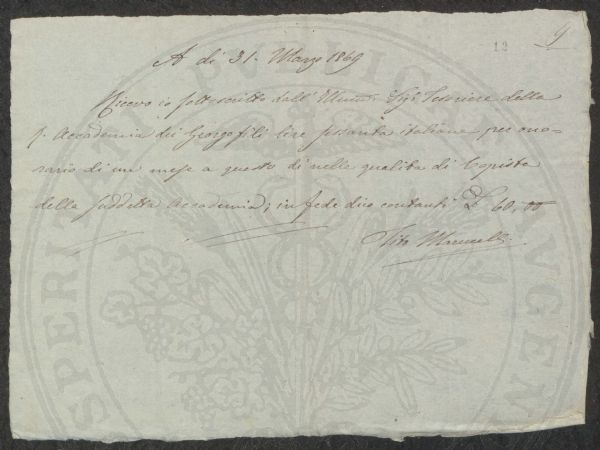 12 9
A dì 31. Marzo 1869
Ricevo io sottoscritto dall' Illmo. Sigr. Tesoriere della
Accademia dei Georgofili lire sessanta italiane per ono-
rario di un mese a questo dì nella qualità di Copista
della suddetta Accademia; in fede dico contanti £ 60,00
Vito
PROSPERITATI PUBLICAE AUGENDAE